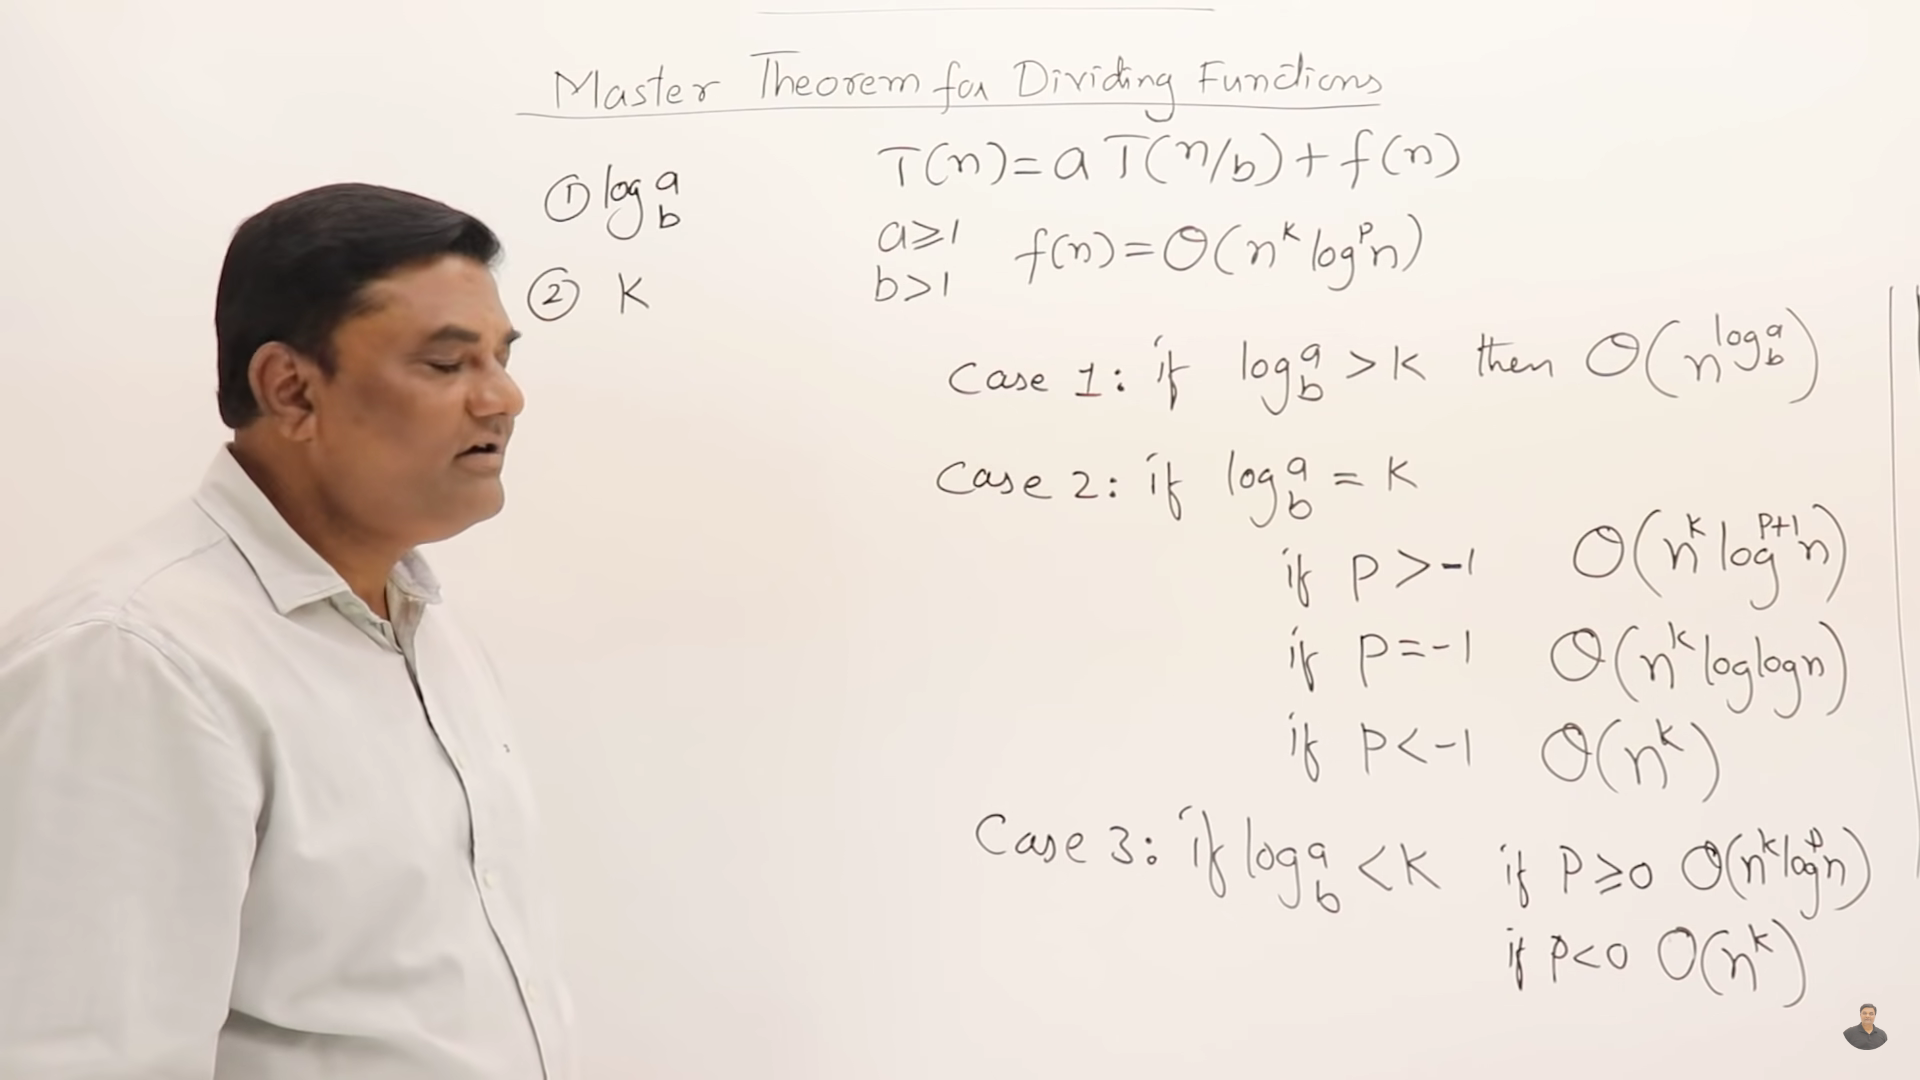 Master Theorem for Dividing Functions
① log a b
② K
T(n) = a T(n/b) + f(n)
a ≥ 1
b > 1
f(n) = O(n^k log^p n)
Case 1: if log_b^a > K then O(n^{log_b^a})
Case 2: if log_b^a = K
if P > -1 O(n^k log^{P+1} n)
if P = -1 O(n^k log log n)
if P < -1 O(n^k)
Case 3: if log_b^a < K if P ≥ 0 O(n^k log^p n)
if P < 0 O(n^k)